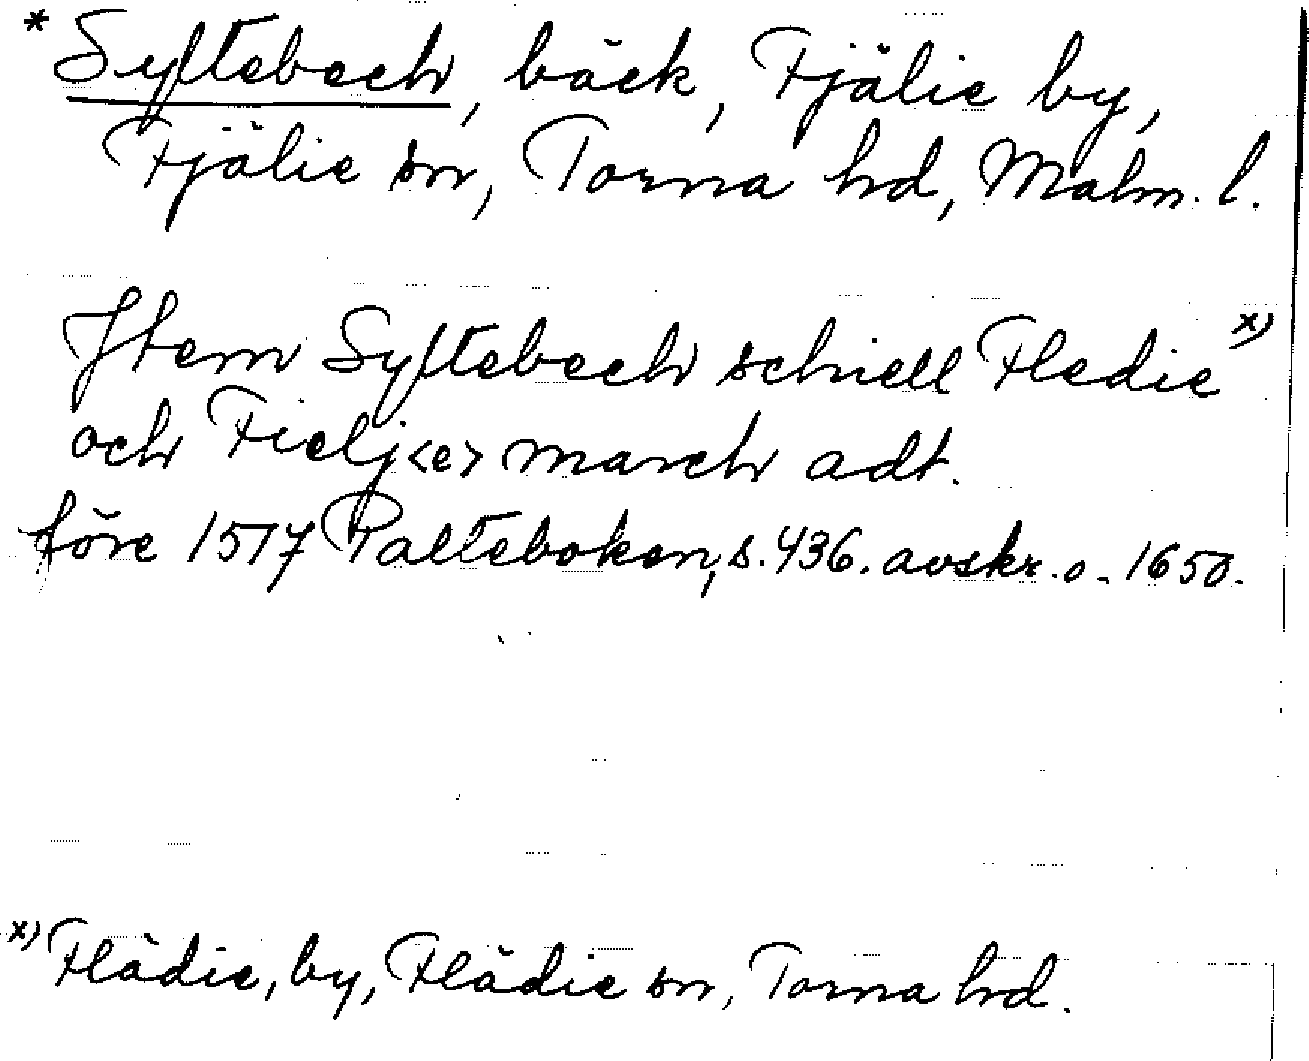 * Syltebech, bäck, Fjälie by,
Fjälie sn, Torna hd, Malm. l.
Jtem Syltebech schiell Fledie x)
och Fielj<e> march adt.
före 1517 Palteboken, s. 436. avskr. o. 1650.
x) Flädie, by, Flädie sn, Torna hd.